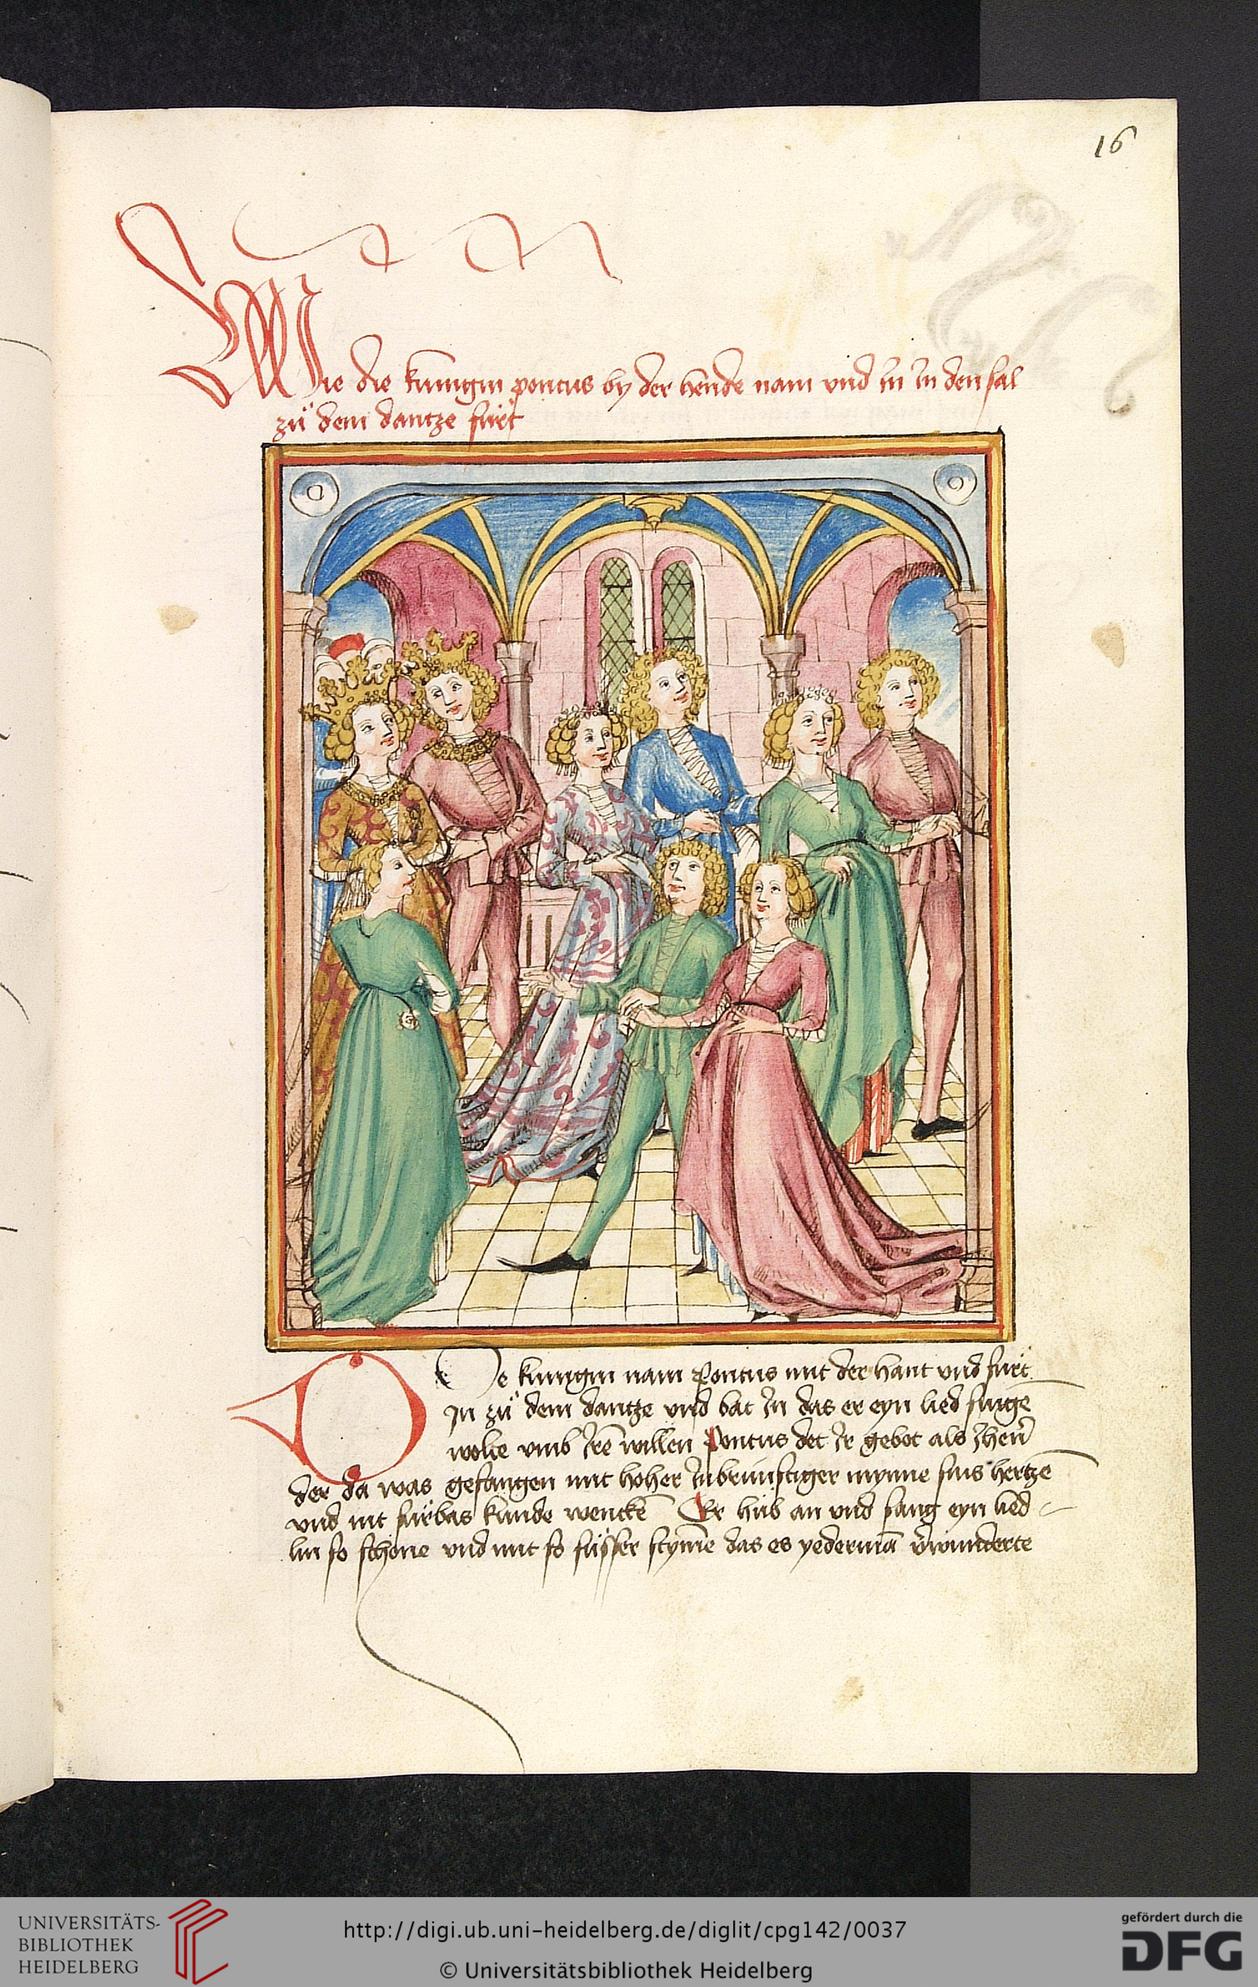 16
Wie die kunigin pontus by der hende nam vnd in in den sal
zü dem dantze fürt
DJe kunigin nam Pontus mit der hant vnd fürt
Jn zü dem dantze vnd bat Jn das er eyn lied singe
wolte vmb Jrē willen Pontus det Jr gebot als Jhen̄
der da was gefangen mit hoher Jnbrünstiger mynne sins hertze
vnd nit fürbas kunde wencken̄ Er hüb an vnd sang eyn lied
lin so schone vnd mit so süsser stym̄e das es yedermā v̄wunderte
UNIVERSITÄTS-
BIBLIOTHEK
HEIDELBERG
http://digi.ub.uni-heidelberg.de/diglit/cpg142/0037
© Universitätsbibliothek Heidelberg
gefördert durch die
DFG